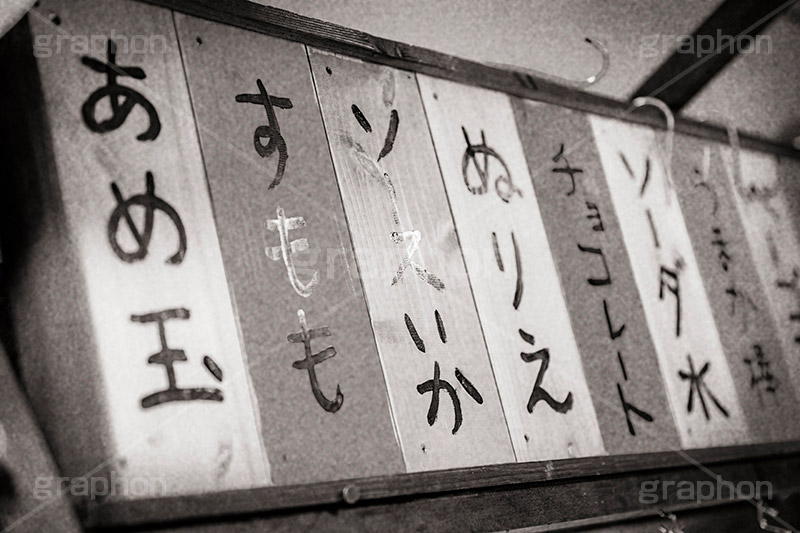 あめ玉
すもも
ソースいか
ぬりえ
チョコレート
ソーダ水
graphon
graphon
graphon
graphon
graphon